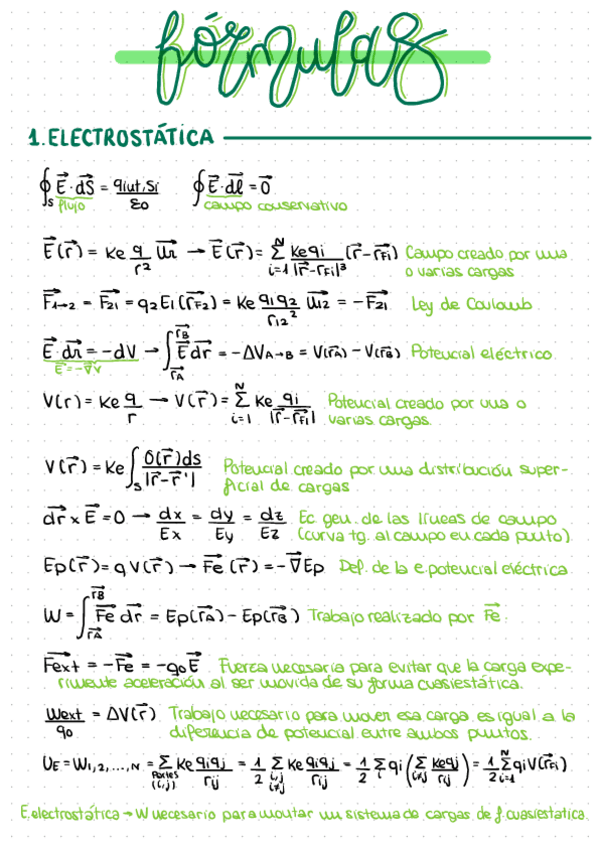 fórmulas
1. ELECTROSTÁTICA
∮s E⃗·dS⃗ = qint,Si/ε0   ∮E⃗·dl⃗ = 0⃗
flujo   campo conservativo
E⃗(r⃗) = Ke q/r² u⃗r → E⃗(r⃗) = Σ_{i=1}^{N} Ke qi/|r⃗-r⃗Fi|³ (r⃗-r⃗Fi) Campo creado por una
o varias cargas
F⃗1→2 = F⃗21 = q2E1(r⃗F2) = Ke q1q2/r12² u⃗12 = -F⃗21 Ley de Coulomb
E⃗·dr⃗ = -dV → ∫_{r⃗A}^{r⃗B} E⃗ dr⃗ = -ΔVA→B = V(r⃗A) - V(r⃗B) Potencial eléctrico
E⃗ = -∇⃗V
V(r) = Ke q/r → V(r⃗) = Σ_{i=1}^{N} Ke qi/|r⃗-r⃗Fi| Potencial creado por una o
varias cargas
V(r⃗) = Ke ∫s δ(r⃗)ds/|r⃗-r⃗'| Potencial creado por una distribución super-
ficial de cargas
dr⃗ x E⃗ = 0 → dx/Ex = dy/Ey = dz/Ez Ec gen. de las líneas de campo
(curva tg. al campo en cada punto)
Ep(r⃗) = qV(r⃗) → F⃗e(r⃗) = -∇⃗Ep Def. de la e. potencial eléctrica
W = ∫_{r⃗A}^{r⃗B} F⃗e dr⃗ = Ep(r⃗A) - Ep(r⃗B) Trabajo realizado por F⃗e.
F⃗ext = -F⃗e = -q0E⃗ Fuerza necesaria para evitar que la carga expe-
rimente aceleración al ser movida de su forma cuasiestática.
Wext/q0 = ΔV(r⃗) Trabajo necesario para mover esa carga es igual a la
diferencia de potencial entre ambos puntos.
UE = W1,2,...,N = Σ_{Pares (i,j)} Ke qiqj/rij = 1/2 Σ_{i,j i≠j} Ke qiqj/rij = 1/2 Σ_i qi (Σ_{i≠j} Keqj/rij) = 1/2 Σ_{i=1}^{N} qiV(r⃗Fi)
E. electrostática → W necesario para montar un sistema de cargas de f. cuasiestatica.